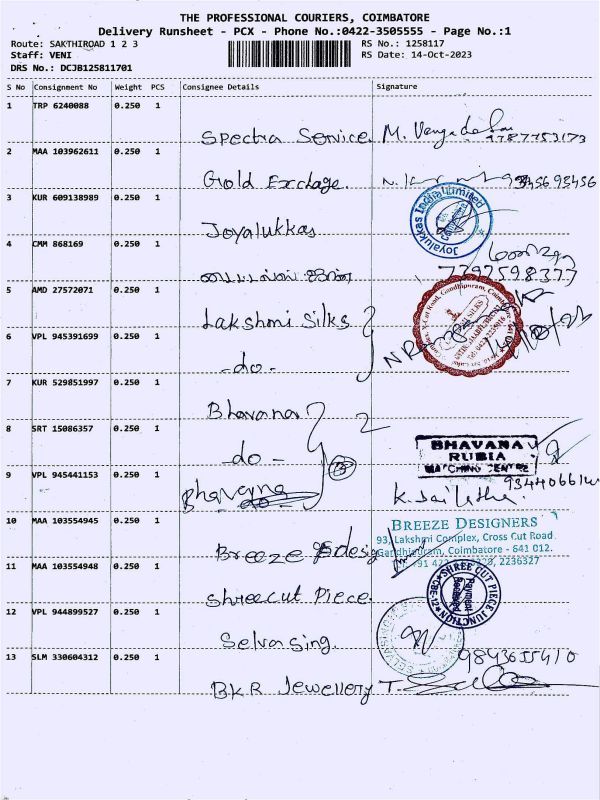 THE PROFESSIONAL COURIERS, COIMBATORE
Delivery Runsheet - PCX - Phone No.:0422-3505555 - Page No.:1
Route: SAKTHIROAD 1 2 3
RS No.: 1258117
Staff: VENI
RS Date: 14-Oct-2023
DRS No.: DCJB125811701
S No Consignment No Weight PCS Consignee Details Signature
1 TRP 6240088 0.250 1
Spectra Service M.
2 MAA 103962611 0.250 1
Gold Exchage. N.
3 KUR 609138989 0.250 1
Joyalukkas
Joyalukkas India Limited
4 CMM 868169 0.250 1
7397598377
5 AMD 27572071 0.250 1
Lakshmi Silks
6 VPL 945391699 0.250 1
-do-
7 KUR 529851997 0.250 1
Bhavana 2
8 SRT 15086357 0.250 1
-do-
BHAVANA
RUBIA
MATCHING CENTRE
9 VPL 945441153 0.250 1
Bhavana
K.
10 MAA 103554945 0.250 1
BREEZE DESIGNERS
93, Lakshmi Complex, Cross Cut Road
Gandhipuram, Coimbatore - 641 012.
2236327
Breeze design
11 MAA 103554948 0.250 1
Shreecut Piece
SHREE CUT PIECE JUNCTION
CBE-12
Payment Received
12 VPL 944899527 0.250 1
Selvasing.
13 SLM 330604312 0.250 1
9843655410
BKR Jewellery T.